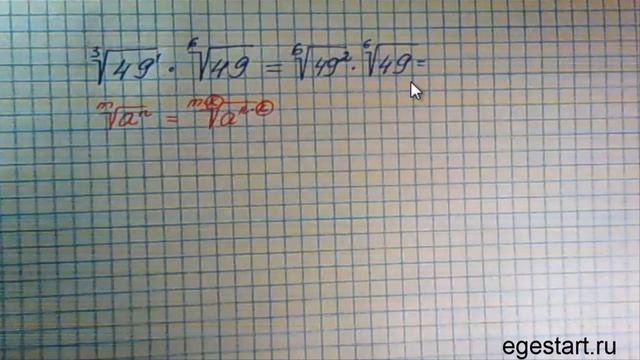 ∛49¹ · ⁶√49 = ⁶√49² · ⁶√49 =
ᵐ√aⁿ = ᵐ·ᵏ√aⁿ·ᵏ
egestart.ru